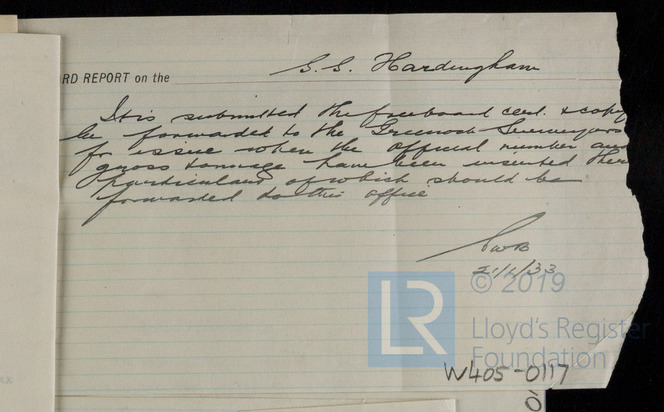 RD REPORT on the S.S. Hardingham
It is submitted the freeboard cert. & copy
be forwarded to the Greenock Surveyors
for issue when the official number and
gross tonnage have been inserted
particulars of which should be
forwarded to this office
21/1/33
© 2019
LR
Lloyd's Register
Foundation
W405-0117